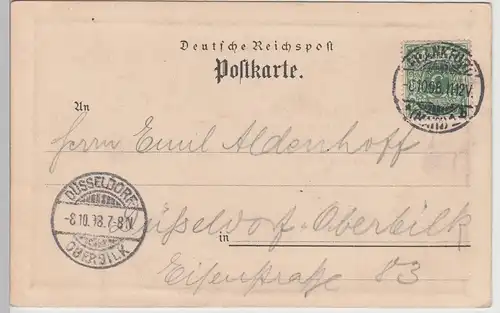 Deutsche Reichspost
Postkarte.
FRANKFURT
-8.10.98.11-12V.
An
Herrn Emil Aldenhoff
DÜSSELDORF
-8.10.98.7-8N
OBERBILK
in Düsseldorf-Oberbilk
Eisenstraße 83